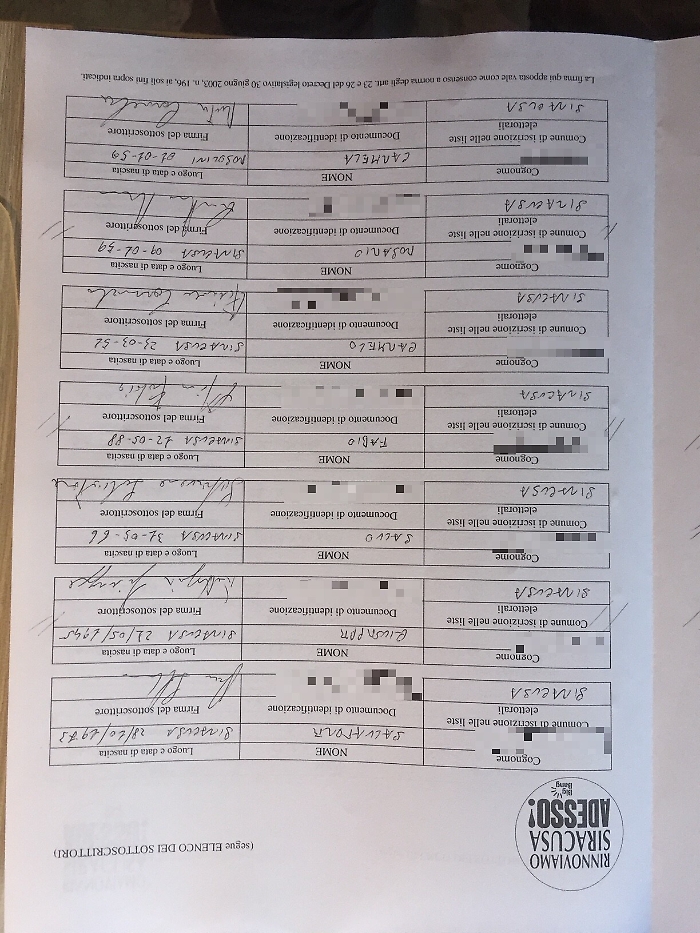 RINNOVIAMO
SIRACUSA
ADESSO!
Big Bang
(segue ELENCO DEI SOTTOSCRITTORI)
Cognome NOME Luogo e data di nascita
SALVATORE SIRACUSA 28/10/1973
Comune di iscrizione nelle liste elettorali Documento di identificazione Firma del sottoscrittore
SIRACUSA
Cognome NOME Luogo e data di nascita
SIRACUSA 22/05/1945
Comune di iscrizione nelle liste elettorali Documento di identificazione Firma del sottoscrittore
SIRACUSA
Cognome NOME Luogo e data di nascita
SALVO SIRACUSA 31-05-66
Comune di iscrizione nelle liste elettorali Documento di identificazione Firma del sottoscrittore
SIRACUSA
Cognome NOME Luogo e data di nascita
FABIO SIRACUSA 22-05-88
Comune di iscrizione nelle liste elettorali Documento di identificazione Firma del sottoscrittore
SIRACUSA
Cognome NOME Luogo e data di nascita
CARMELO SIRACUSA 23-03-52
Comune di iscrizione nelle liste elettorali Documento di identificazione Firma del sottoscrittore
SIRACUSA
Cognome NOME Luogo e data di nascita
ROSARIO SIRACUSA 09-02-59
Comune di iscrizione nelle liste elettorali Documento di identificazione Firma del sottoscrittore
SIRACUSA
Cognome NOME Luogo e data di nascita
CARMELA ROSOLINI 01-01-59
Comune di iscrizione nelle liste elettorali Documento di identificazione Firma del sottoscrittore
SIRACUSA
La firma qui apposta vale come consenso a norma degli artt. 23 e 26 del Decreto legislativo 30 giugno 2003, n. 196, ai soli fini sopra indicati.